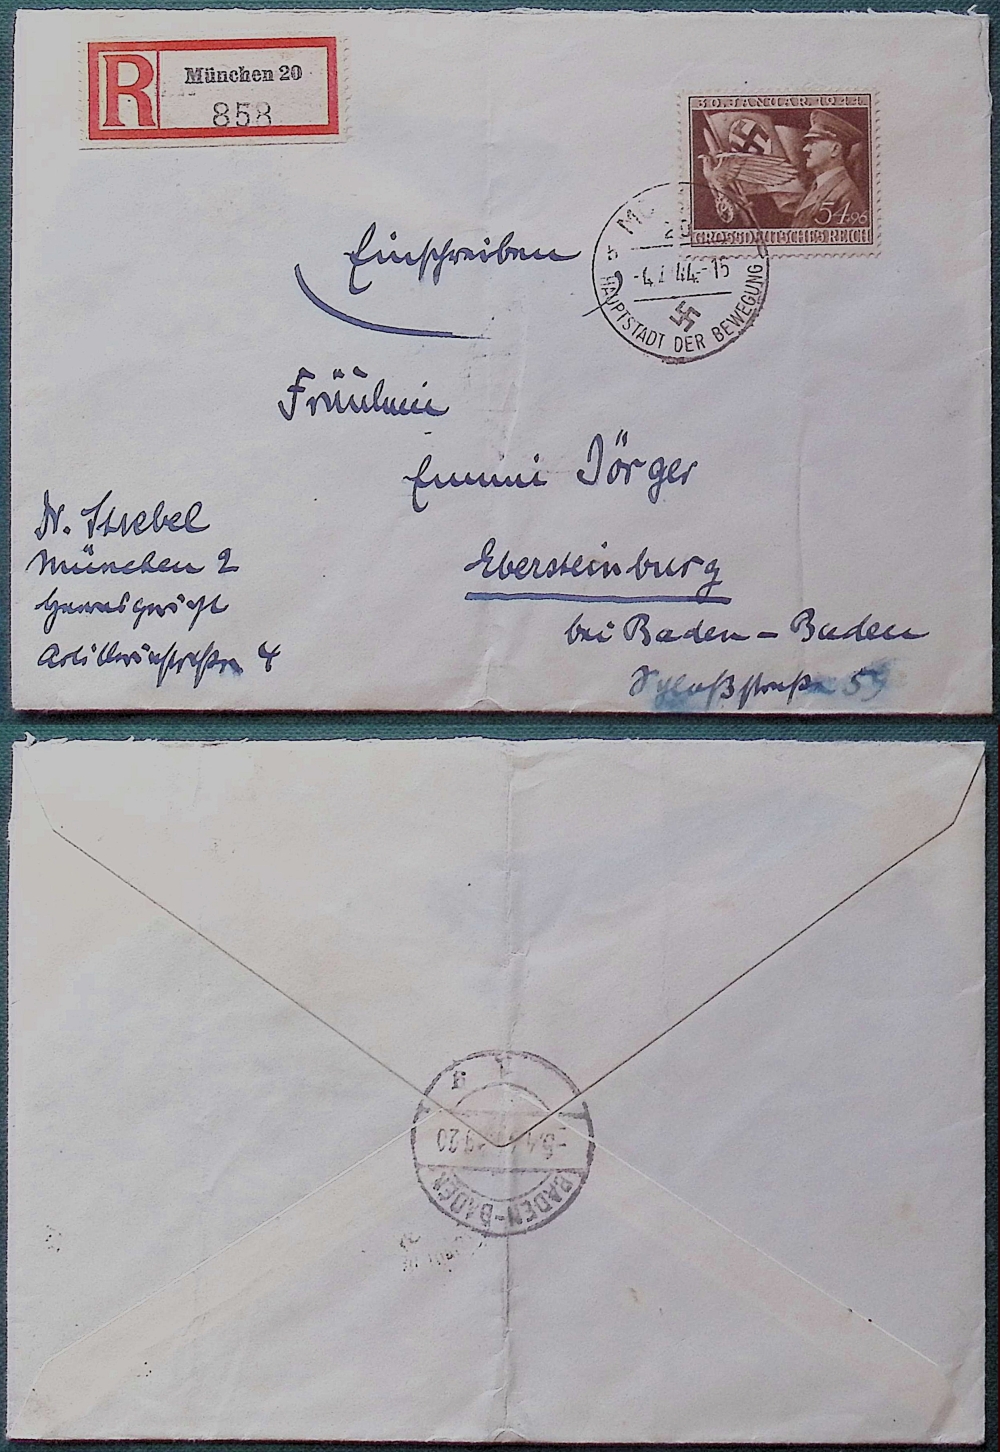 R München 20
858
30. JANUAR 1944
54+96
GROSSDEUTSCHES REICH
20
44-15
HAUPTSTADT DER BEWEGUNG
Einschreiben
Fräulein
Emmi Jörger
Ebersteinburg
bei Baden-Baden
Schloßstraße 59
Dr. Striebel
München 2
Artilleriestraße 4
20
BADEN-BADEN